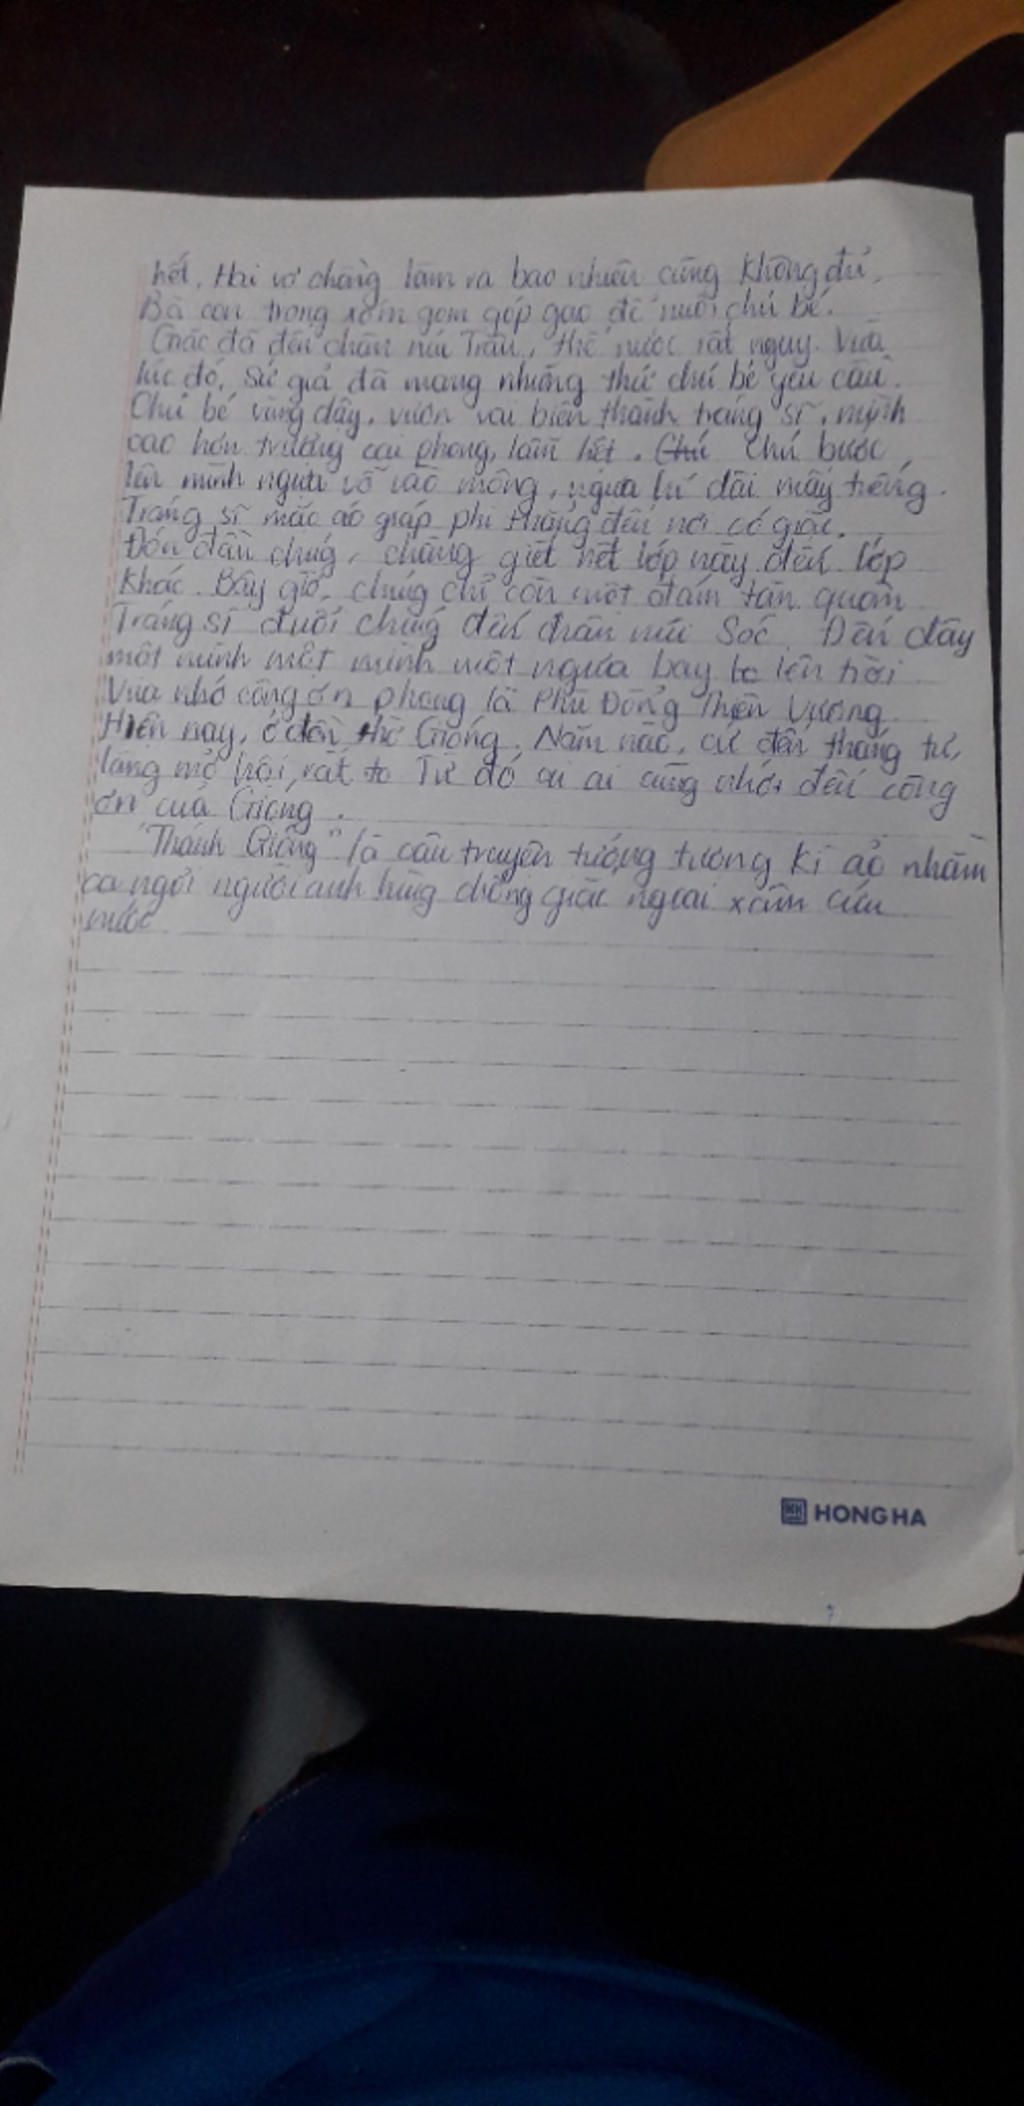 hết. Hai vợ chồng làm ra bao nhiêu cũng không đủ.
Bà con trong xóm gom góp gạo để nuôi chú bé.
Giặc đã đến chân núi Trâu, thế nước rất nguy. Vừa
lúc đó, Sứ giả đã mang những thứ chú bé yêu cầu.
Chú bé vùng dậy, vươn vai biến thành tráng sĩ, mình
cao hơn trượng oai phong, lẫm liệt. Chú bước
lên mình ngựa vỗ vào mông, ngựa hí dài mấy tiếng.
Tráng sĩ mặc áo giáp phi thẳng đến nơi có giặc.
Đón đầu chúng, chàng giết hết lớp này đến lớp
khác. Bây giờ, chúng chỉ còn một đám tàn quân
Tráng sĩ đuổi chúng đến chân núi Sóc. Đến đây
một mình một mình một ngựa bay lên trời
Vua nhớ công ơn phong là Phù Đổng Thiên Vương
Hiện nay, ở đền thờ Gióng. Năm nào, cứ đến tháng tư,
làng mở hội rất to Từ đó ai ai cũng nhớ đến công
ơn của Gióng.
"Thánh Gióng" là câu truyện tưởng tượng kì ảo nhằm
ca ngợi người anh hùng chống giặc ngoại xâm cứu
nước
HONG HA